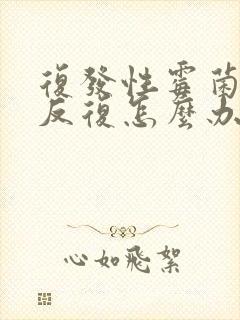 復發性霉菌
反復怎麼办
心如飛絮